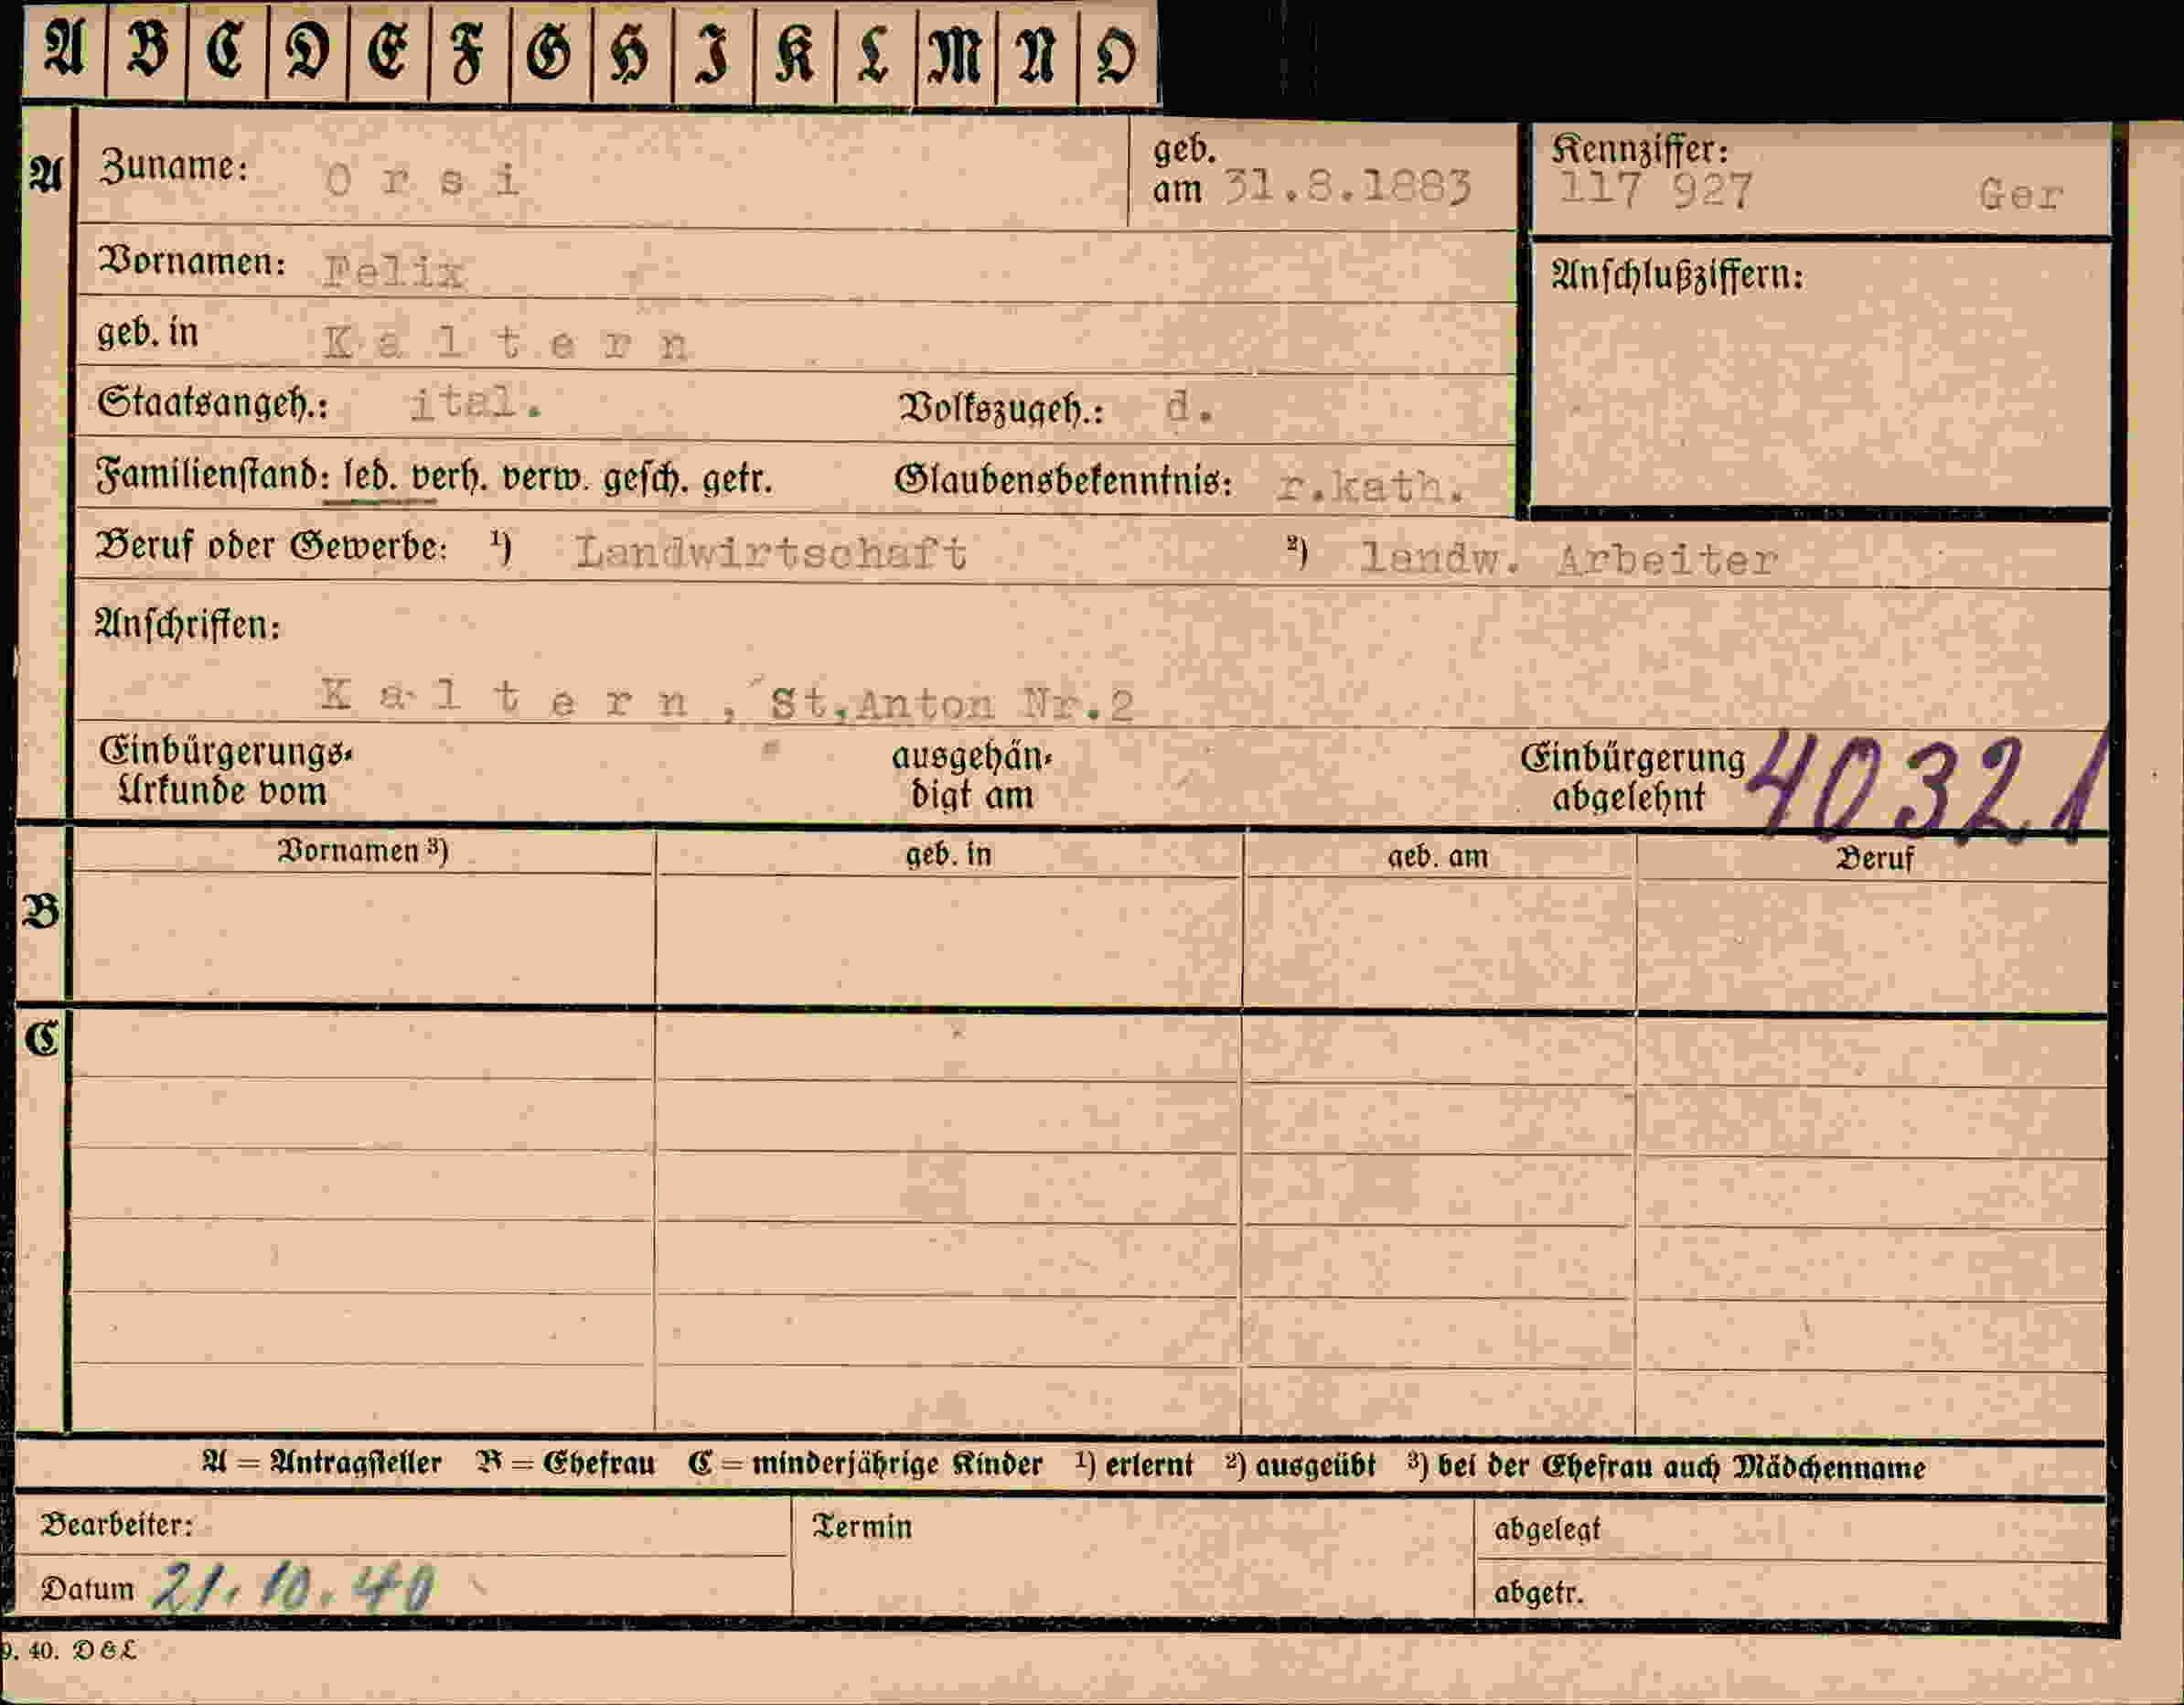 A B C D E F G H I K L M N O
A Zuname: Orsi geb. am 31.8.1883 Kennziffer: 117 927 Ger
Vornamen: Felix Anschlußziffern:
geb. in Kaltern
Staatsangeh.: ital. Volkszugeh.: d.
Familienstand: led. verh. verw. gesch. getr. Glaubensbekenntnis: r.kath.
Beruf oder Gewerbe: ¹) Landwirtschaft ²) landw. Arbeiter
Anschriften:
Kaltern, St.Anton Nr.2
Einbürgerungs- ausgehän- Einbürgerung 40321
Urkunde vom digt am abgelehnt
Vornamen ³) geb. in geb. am Beruf
B
C
A = Antragsteller B = Ehefrau C = minderjährige Kinder ¹) erlernt ²) ausgeübt ³) bei der Ehefrau auch Mädchenname
Bearbeiter: Termin abgelegt
Datum 21.10.40 abgetr.
9. 40. D&L